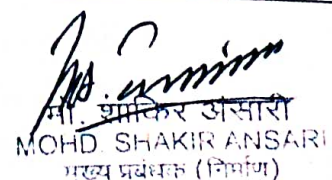 मो. शाकिर अंसारी
MOHD. SHAKIR ANSARI
मुख्य प्रबंधक (निर्माण)